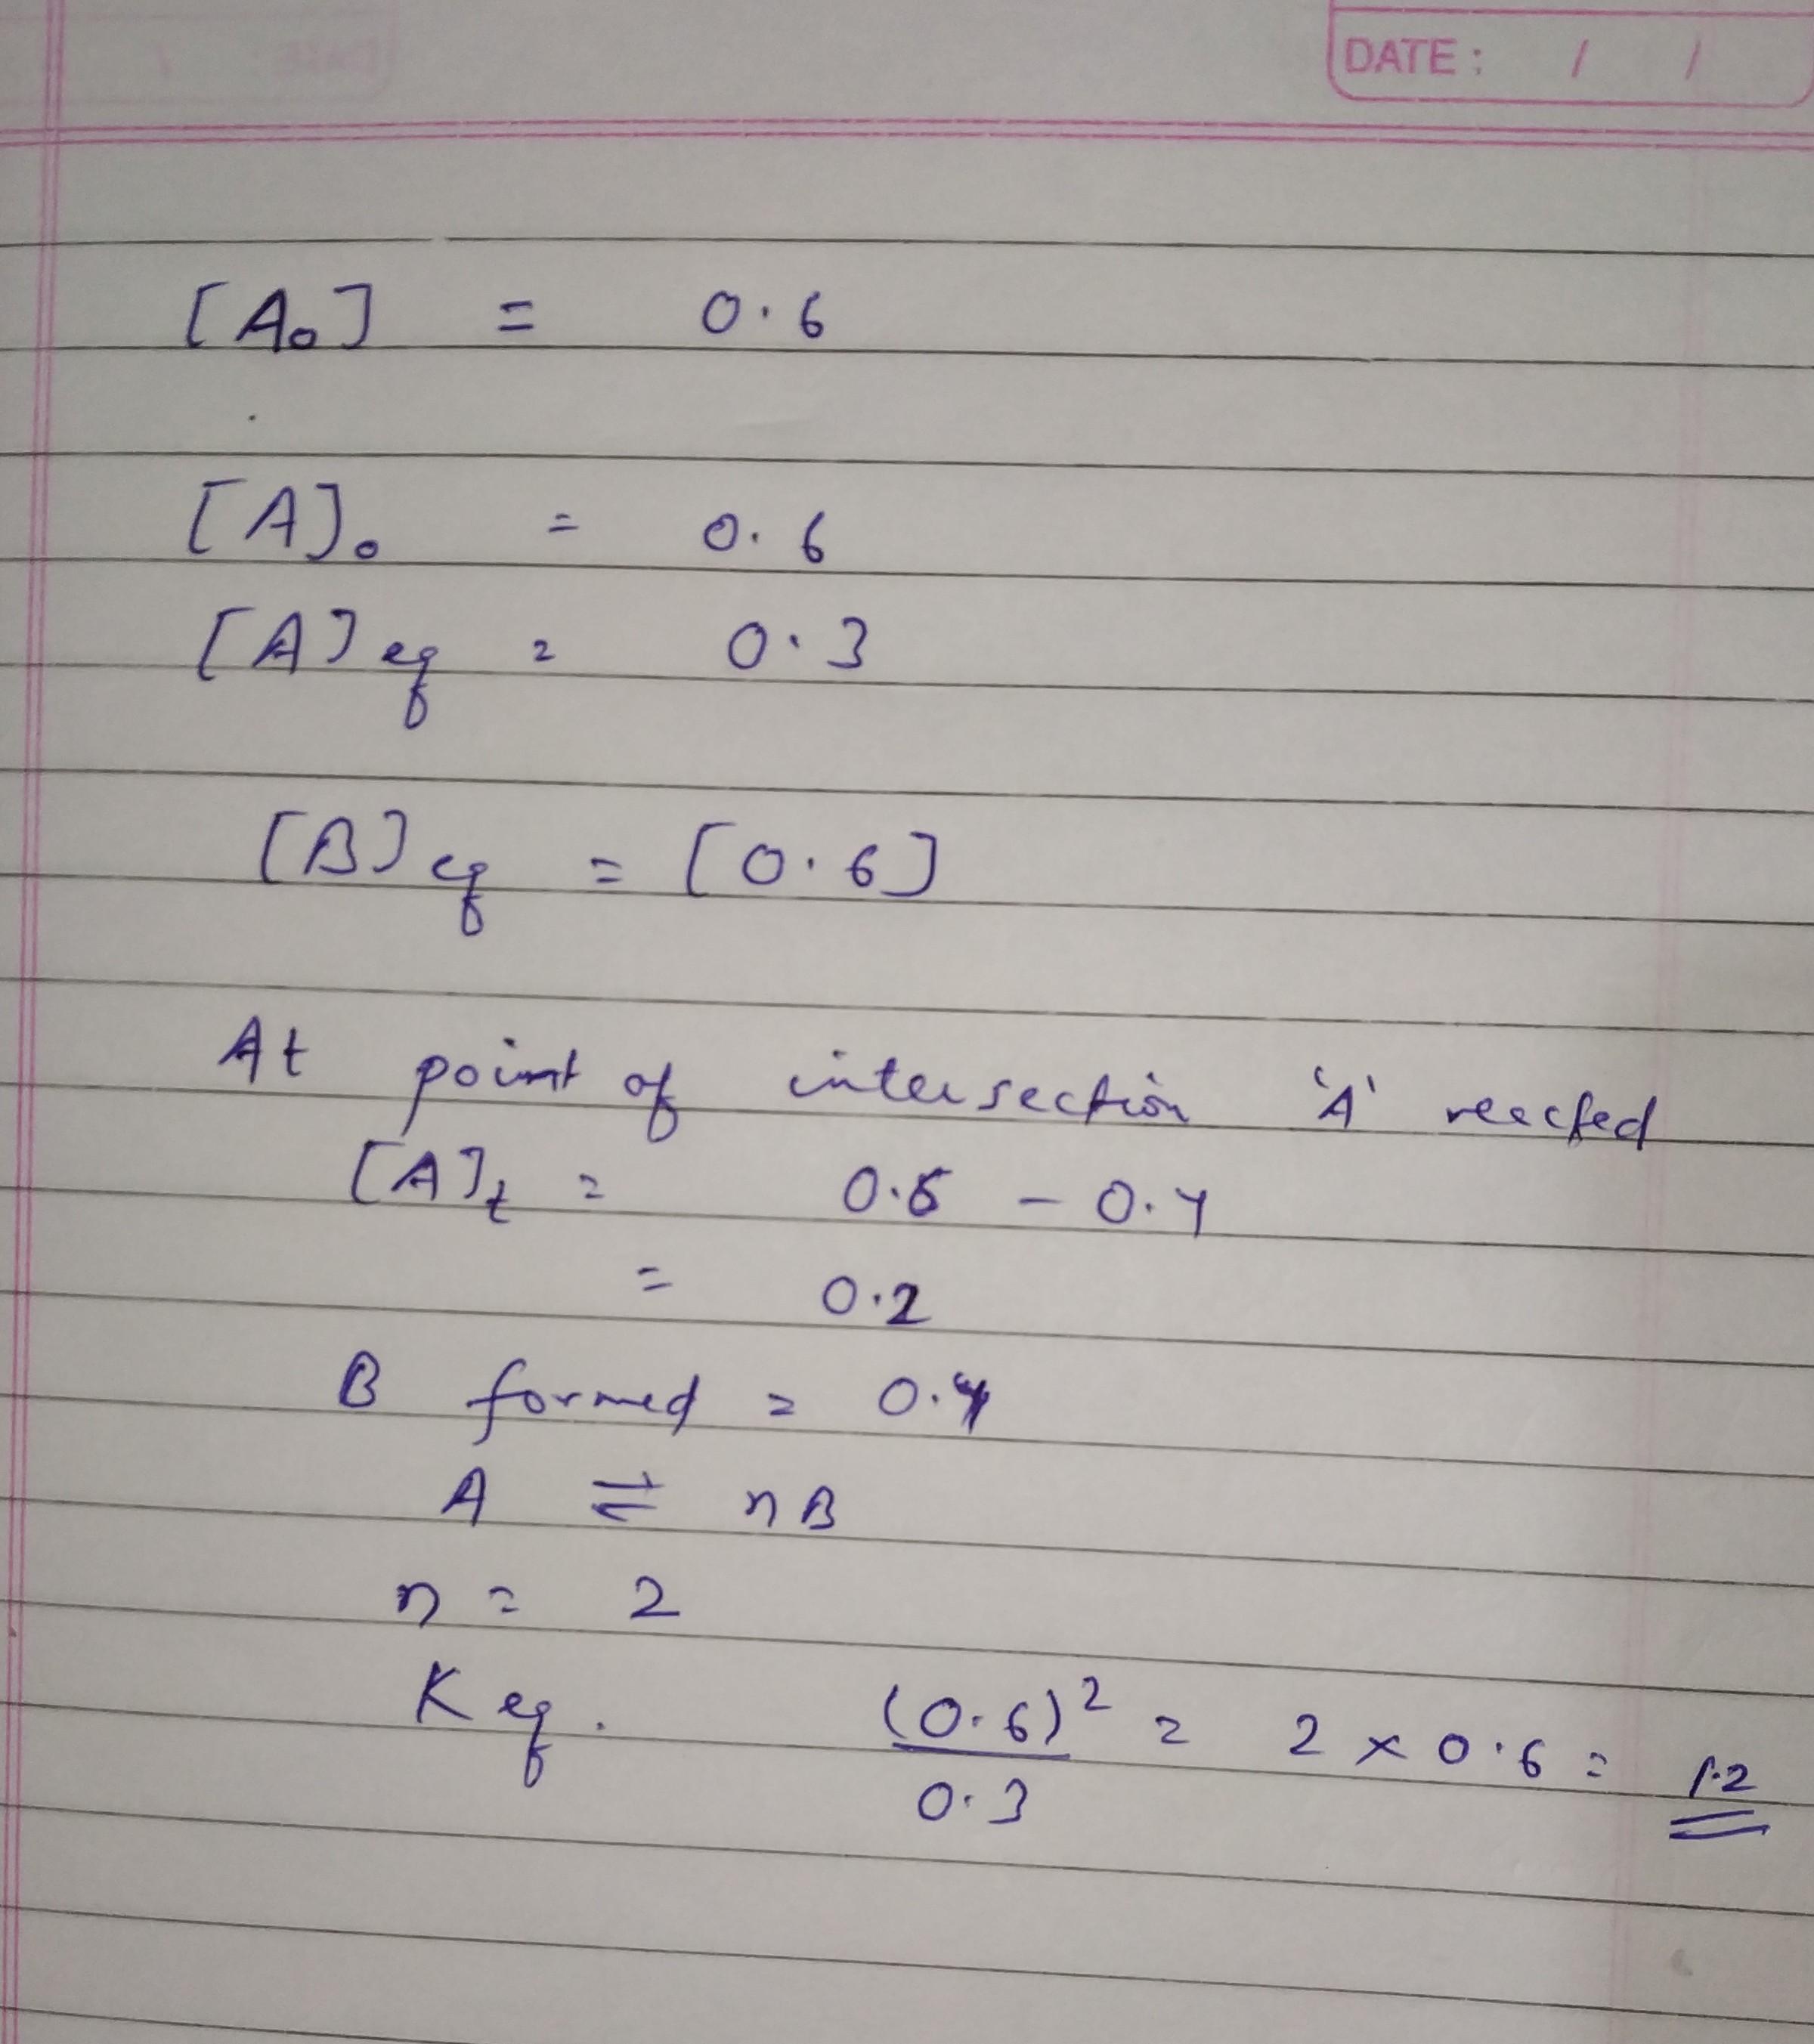 DATE: / /
[A₀] = 0.6
[A]₀ = 0.6
[A]eq = 0.3
[B]eq = [0.6]
At point of intersection 'A' reacted
[A]t = 0.6 - 0.4
= 0.2
B formed = 0.4
A ⇌ nB
n = 2
Keq. (0.6)²/0.3 = 2 × 0.6 = 1.2